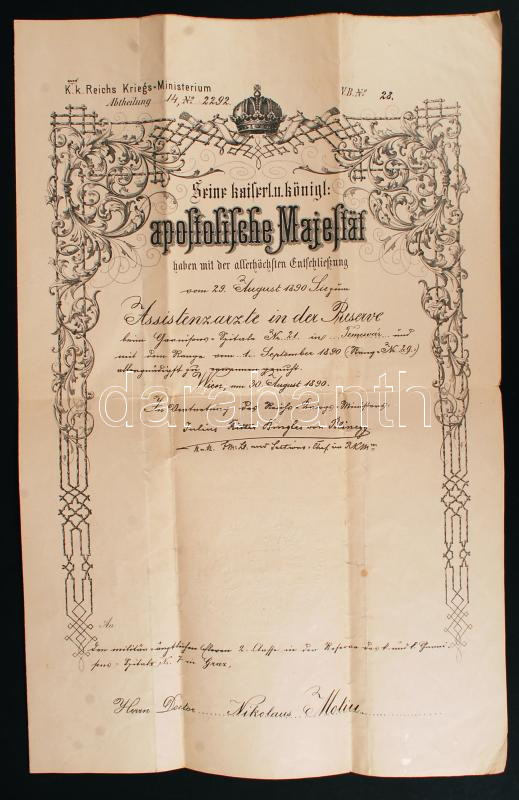 K. und k. Reichs Kriegs-Ministerium
Abtheilung 14, No 2292.
V.B. No 28.
Seine kaiserl. u. königl:
apostolische Majestät
haben mit der allerhöchsten Entschließung
vom 29. August 1890 Sie zum
Assistenzarzte in der Reserve
beim Garnisons-Spitale No. 21. in Temesvár und
mit dem Range vom 1. September 1890 (Rang-No 29.)
allergnädigst zu ernennen geruht.
Wien, am 30. August 1890.
In Vertretung des Reichs-Kriegs-Ministers:
Julius Ritter von
k. u. k. FML. und Sections-Chef im RKM
darabanth
An
den militär-ärztlichen Eleven 2. Classe in der Reserve des k. und k. Garni-
sons-Spitals No. 7 in Graz,
Herrn Doctor Nikolaus Moliu